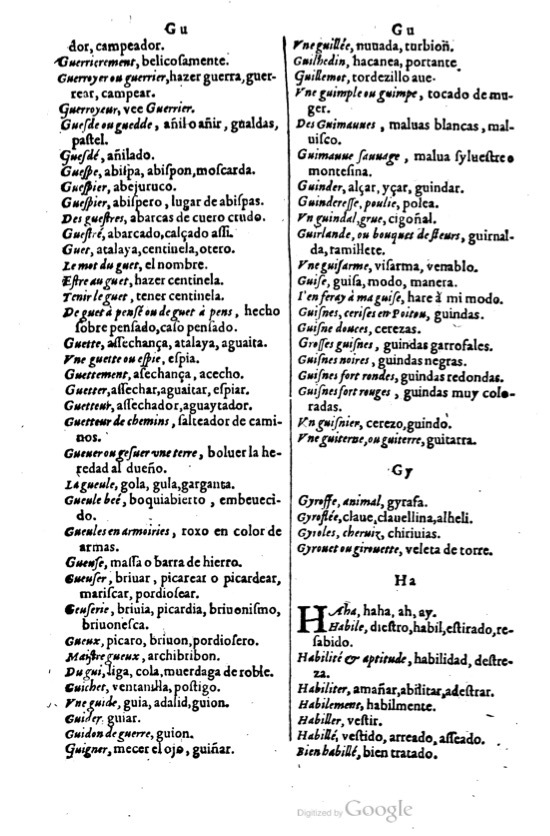 Gu
dor, campeador.
Guerrierement, belicosamente.
Guerroyer ou guerrier, hazer guerra, guer-
rear, campear.
Guerroyeur, vee Guerrier.
Gueſde ou guedde, añil o añir, gualdas,
paſtel.
Gueſdé, añilado.
Gueſpe, abiſpa, abiſpon, moſcarda.
Gueſpier, abejuruco.
Gueſpier, abiſpero, lugar de abiſpas.
Des gueſtres, abarcas de cuero crudo.
Gueſtré, abarcado, calçado aſſi.
Guet, atalaya, centinela, otero.
Le mot du guet, el nombre.
Eſtre au guet, hazer centinela.
Tenir le guet, tener centinela.
De guet à penſé ou de guet à pens, hecho
ſobre penſado, caſo penſado.
Guette, aſſechança, atalaya, aguaita.
Vne guette ou eſpie, eſpia.
Guettement, aſechança, acecho.
Guetter, aſſechar, aguaitar, eſpiar.
Guetteur, aſſechador, aguaytador.
Guetteur de chemins, ſalteador de cami-
nos.
Gueuer ou geſuer vne terre, boluer la he-
redad al dueño.
La gueule, gola, gula, garganta.
Gueule beé, boquiabierto, embeueci-
do.
Gueules en armoiries, roxo en color de
armas.
Gueuſe, maſſa o barra de hierro.
Gueuſer, briuar, picarear o picardear,
mariſcar, pordioſear.
Geuſerie, briuia, picardia, briuoniſmo,
briuoneſca.
Gueux, picaro, briuon, pordioſero.
Maiſtre gueux, archibribon.
Du gui, liga, cola, muerdaga de roble.
Guichet, ventanilla, poſtigo.
Vne guide, guia, adalid, guion.
Guider, guiar.
Guidon de guerre, guion.
Guigner, mecer el ojo, guiñar.
Gu
Vne guillée, nuuada, turbioñ.
Guilhedin, hacanea, portante
Guillemot, tordezillo aue.
Vne guimple ou guimpe, tocado de mu-
ger.
Des Guimauues, maluas blancas, mal-
uiſco.
Guimauue ſauuage, malua ſylueſtre o
monteſina.
Guinder, alçar, yçar, guindar.
Guindereſſe, poulie, polea.
Vn guindal, grue, cigoñal.
Guirlande, ou bouquet de fleurs, guirnal-
da, ramillete.
Vne guiſarme, viſarma, venablo.
Guiſe, guiſa, modo, manera.
I'en feray à ma guiſe, hare à mi modo.
Guiſnes, ceriſes en Poitou, guindas.
Guiſne douces, cerezas.
Groſſes guiſnes, guindas garrofales.
Guiſnes noires, guindas negras.
Guiſnes fort rondes, guindas redondas.
Guiſnes fort rouges, guindas muy colo-
radas.
Vn guiſnier, cerezo, guindo.
Vne guiterne, ou guiterre, guitarra.
Gy
Gyroffe, animal, gyrafa.
Gyroflée, claue, clauellina, alheli.
Gyroles, cheruiz, chiriuias.
Gyrouet ou girouette, veleta de torre.
Ha
HAha, haha, ah, ay.
Habile, dieſtro, habil, eſtirado, re-
ſabido.
Habilité & aptitude, habilidad, deſtre-
za.
Habiliter, amañar, abilitar, adeſtrar.
Habilement, habilmente.
Habiller, veſtir.
Habillé, veſtido, arreado, aſſeado.
Bien habillé, bien tratado.
Digitized by Google